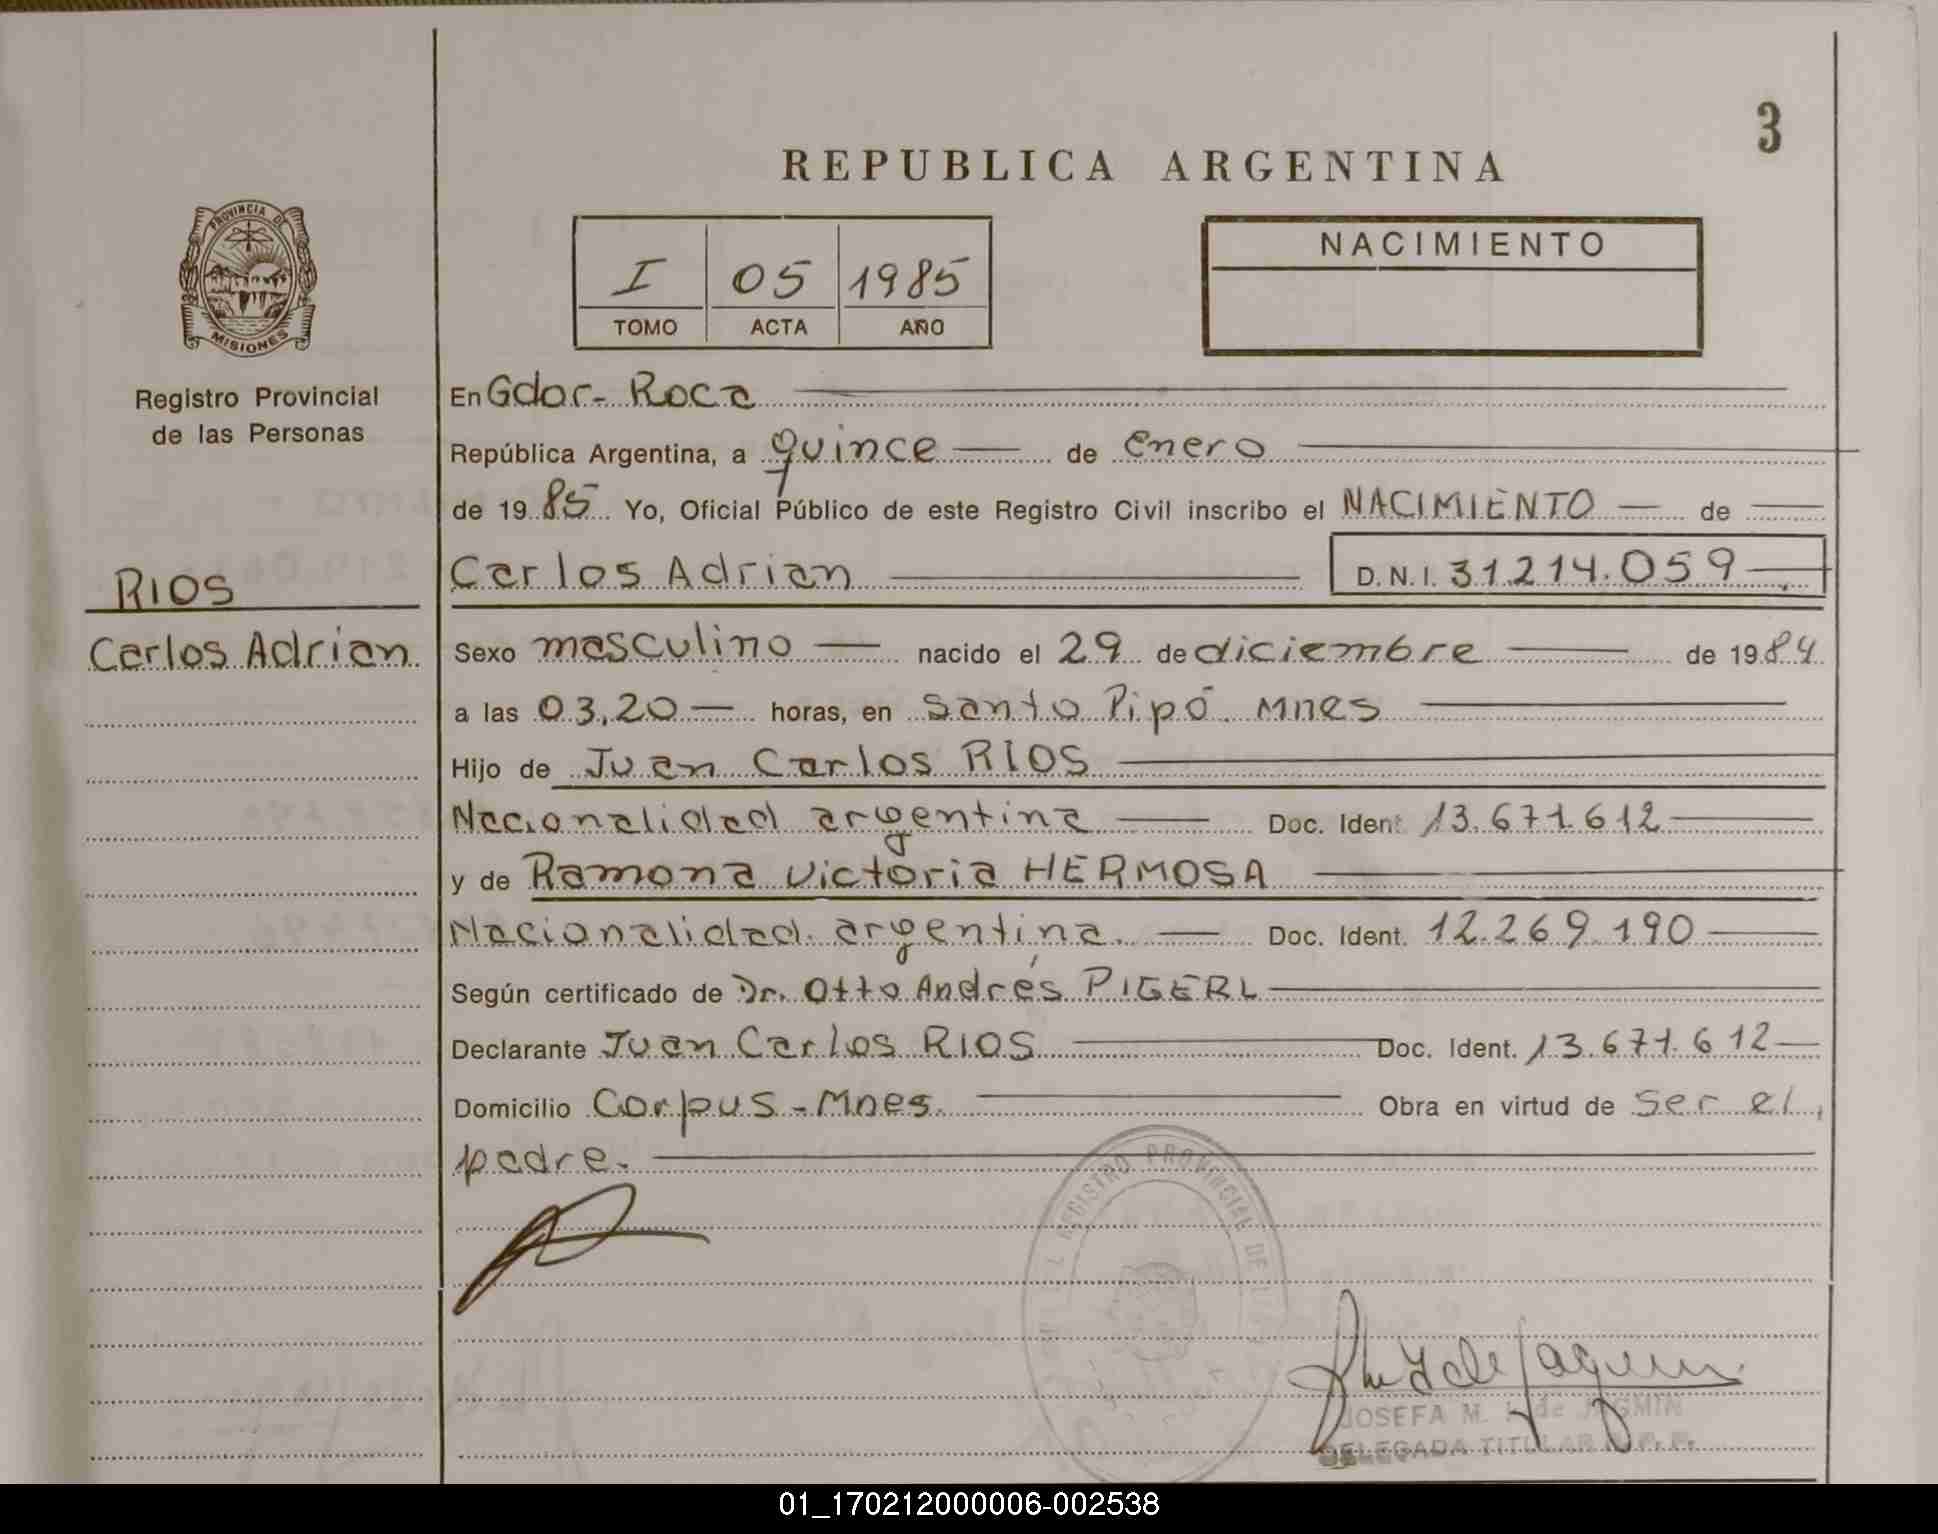 3
REPUBLICA ARGENTINA
PROVINCIA DE
MISIONES
Registro Provincial
de las Personas
RIOS
Carlos Adrian
I 05 1985
TOMO ACTA AÑO
NACIMIENTO
En Gdor- Roca
República Argentina, a quince de Enero
de 1985 Yo, Oficial Público de este Registro Civil inscribo el NACIMIENTO de
Carlos Adrian D.N.I. 31.214.059
Sexo masculino nacido el 29 de diciembre de 1984
a las 03,20 horas, en Santo Pipó Mnes
Hijo de Juan Carlos RIOS
Nacionalidad argentina Doc. Ident. 13.671.612
y de Ramona Victoria HERMOSA
Nacionalidad argentina. Doc. Ident. 12.269.190
Según certificado de Dr. Otto Andrés PIGERL
Declarante Juan Carlos RIOS Doc. Ident. 13.671.612
Domicilio Corpus - Mnes. Obra en virtud de ser el
padre.
REGISTRO PROVINCIAL DE
JOSEFA M. de
DELEGADA TITULAR
01_170212000006-002538